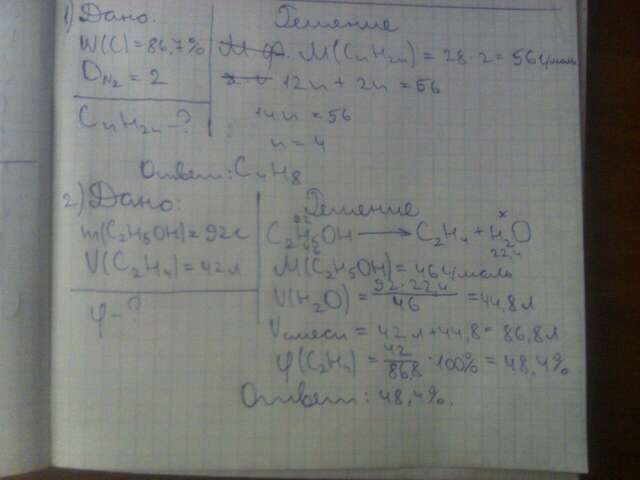 1) Дано:
W(C) = 86,7%
D N₂ = 2
CnH2n - ?
Решение
M(CnH2n) = 28 · 2 = 56 г/моль
12n + 2n = 56
14n = 56
n = 4
Ответ: C₄H₈
2) Дано:
m(C₂H₅OH) = 92г
V(C₂H₄) = 42л
φ - ?
Решение
92 x
C₂H₅OH → C₂H₄ + H₂O
46 22,4
M(C₂H₅OH) = 46 г/моль
V(H₂O) = 92 · 22,4 / 46 = 44,8 л
Vсмеси = 42 л + 44,8 = 86,8 л
φ(C₂H₄) = 42 / 86,8 · 100% = 48,4%
Ответ: 48,4%.